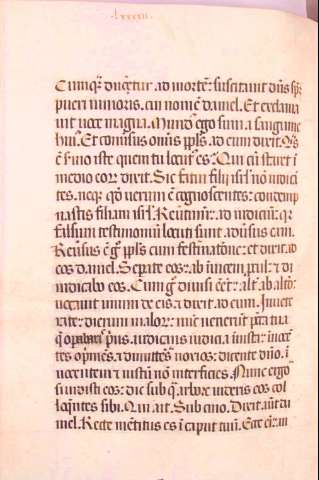 lxxxii
Cumq̃ duceret̃ ad mortẽ: suscitauit dñs sp̃m
pueri iunioris. cui nomẽ daniel. Et exclama
uit uoce magna. Mundꝰ ego sum a sanguine
huiꝰ. Et conuersus omĩs ppl̃s. ad eum dixit. Qis
ẽ sermo iste quem tu locutꝰ es: Qui cũ staret ĩ
medio eoꝝ: dixit. Sic fatui filii isrł nõ iudicã
tes. neqꝫ qd̃ uerum ẽ cognoscentes: condemp
nastis filiam isrł. Reuertimĩ: ad iudiciũ: qꝛ
falsum testimoniũ locuti sunt. aduersus eam.
Reuersus ẽ gͦ ppl̃s cum festinatiõne: et dixit. ad
eos daniel. Separate eos: ab ĩuicem. procul: et di
iudicabo eos. Cum gͦ diuisi eẽt: alt̃ ab alto:
uocauit unum de eis. et dixit. ad eum. Inuete
rate: dierum maloꝝ: nũc uenerũt pctã tua
q̃ opabaris priꝰ. iudicans iudicia iniusta: innocẽ
tes opp̃mẽs. et dimittẽs noxios: dicente dño. ĩ
nocentem et iustũ nõ interficies. Nunc ergo
si uidisti eos: dic sub q̃. arbore uideris eos col
loquẽtes sibi. Qui ait. Sub cino. Dixit. aut̃ da
niel. Recte mẽtitus es ĩ caput tuũ. Ecce eĩ: